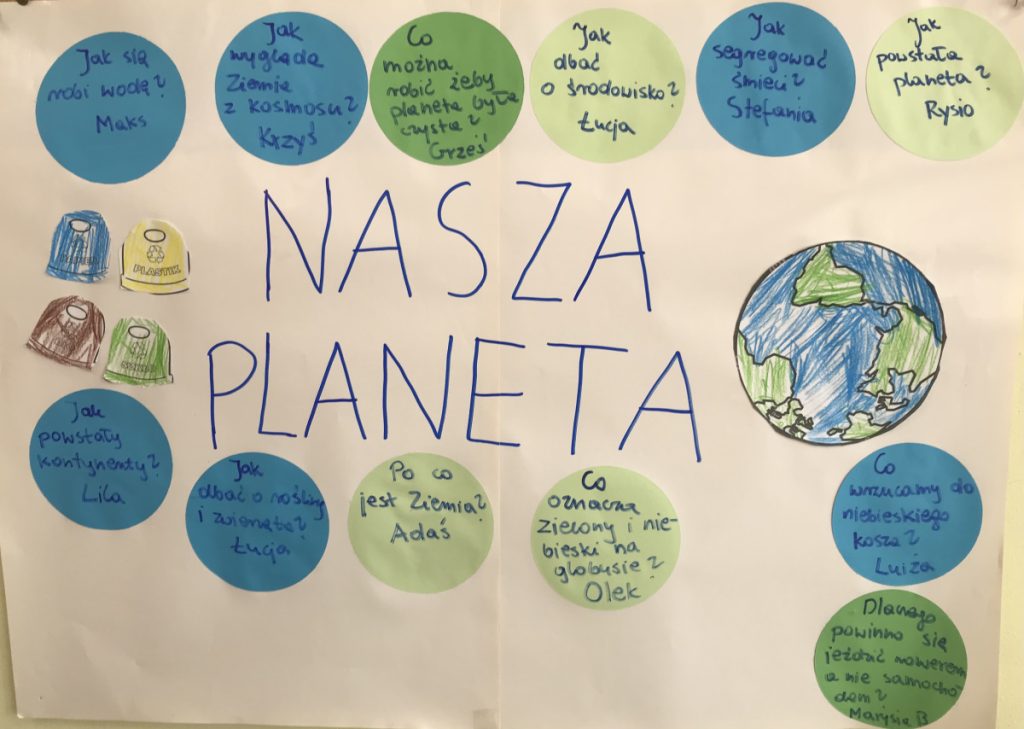 Jak się
robi wodę?
Maks
Jak
wygląda
Ziemia
z kosmosu?
Krzyś
Co
można
robić żeby
planeta była
czysta?
Grześ
Jak
dbać
o środowisko?
Łucja
Jak
segregować
śmieci?
Stefania
Jak
powstała
planeta?
Rysio
NASZA
PLANETA
PAPIER
PLASTIK
Jak
powstały
kontynenty?
Lila
Jak
dbać o rośliny
i zwierzęta?
Łucja
Po co
jest Ziemia?
Adaś
Co
oznacza
zielony i nie-
bieski na
globusie?
Olek
Co
wrzucamy do
niebieskiego
kosza?
Luiza
Dlaczego
powinno się
jeździć rowerem
a nie samocho-
dem?
Marysia B